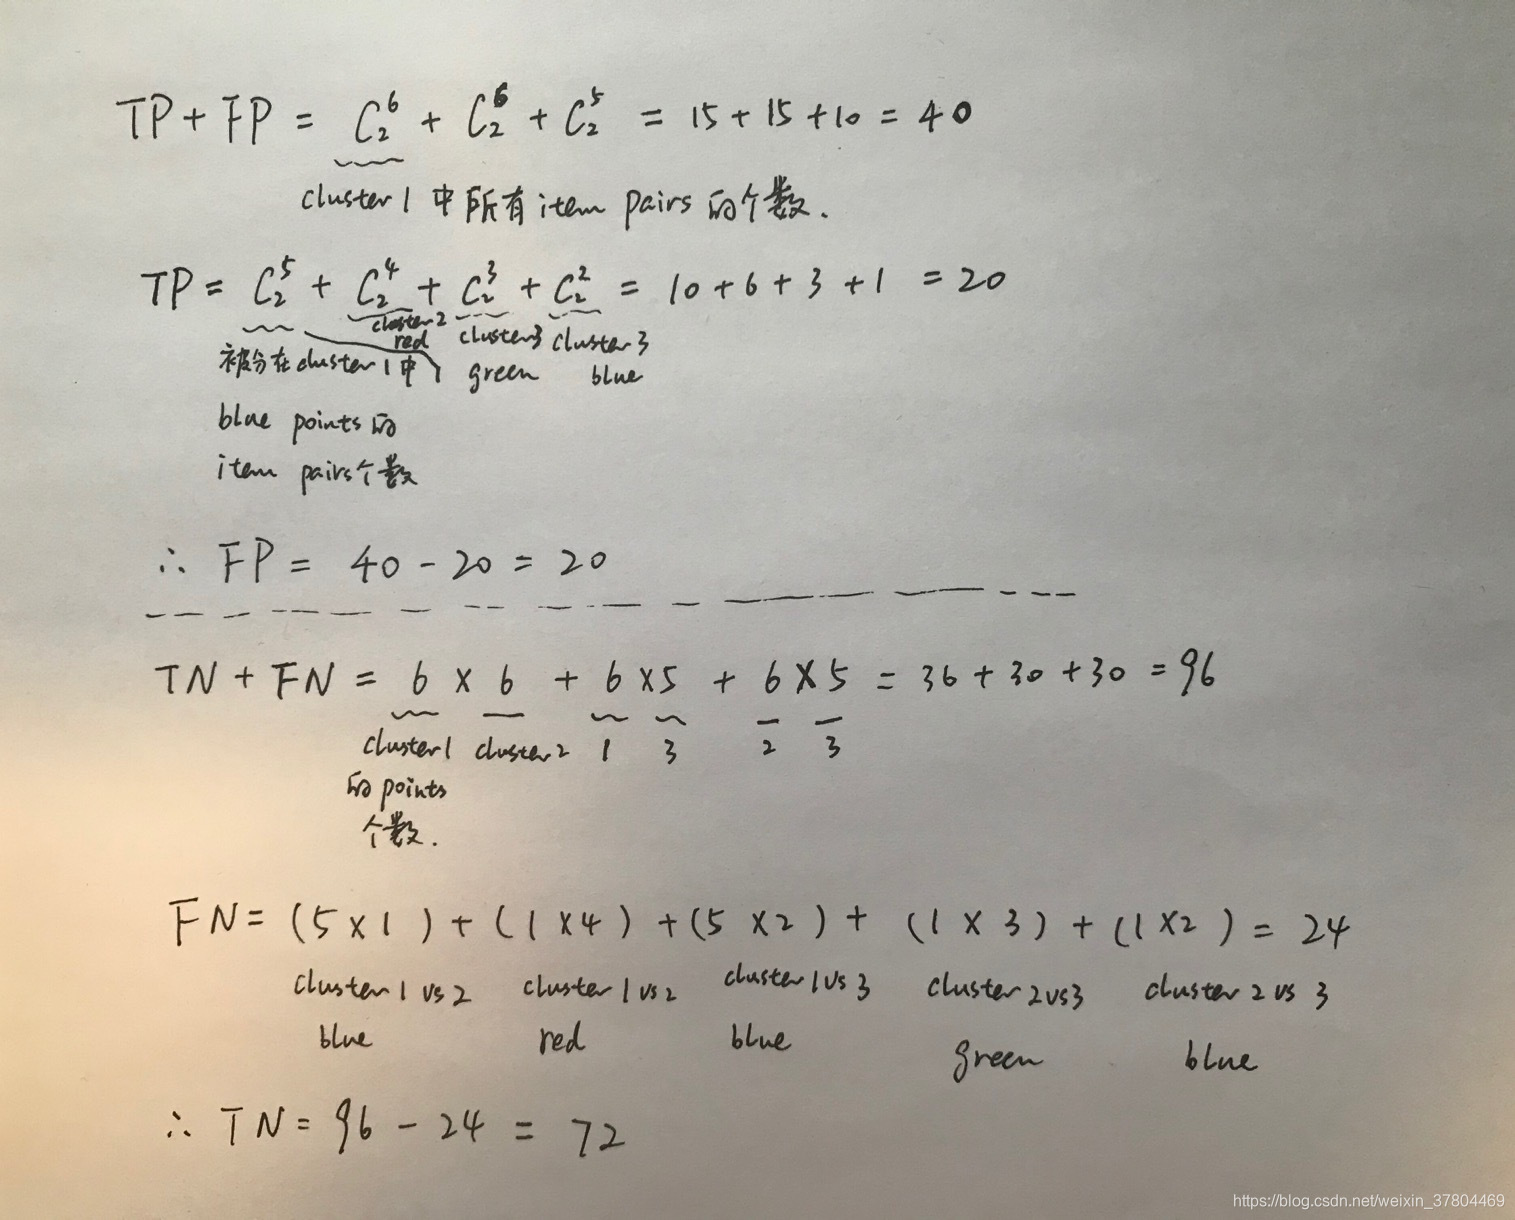 TP + FP = C₂⁶ + C₂⁶ + C₂⁵ = 15 + 15 + 10 = 40
cluster 1 中所有 item pairs 的个数.
TP = C₂⁵ + C₂⁴ + C₂³ + C₂² = 10 + 6 + 3 + 1 = 20
cluster 2 red
cluster 3 green
cluster 3 blue
被分在 cluster 1 中
blue points 的
item pairs 个数
∴ FP = 40 - 20 = 20
TN + FN = 6 × 6 + 6 × 5 + 6 × 5 = 36 + 30 + 30 = 96
cluster 1 cluster 2 1 3 2 3
的 points
个数.
FN = (5 × 1) + (1 × 4) + (5 × 2) + (1 × 3) + (1 × 2) = 24
cluster 1 vs 2 cluster 1 vs 2 cluster 1 vs 3 cluster 2 vs 3 cluster 2 vs 3
blue red blue green blue
∴ TN = 96 - 24 = 72
https://blog.csdn.net/weixin_37804469